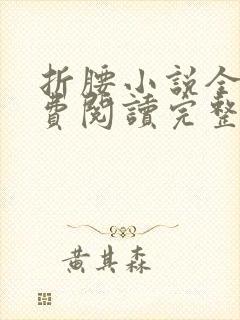 折腰小說全
費閱讀完整
黃其森